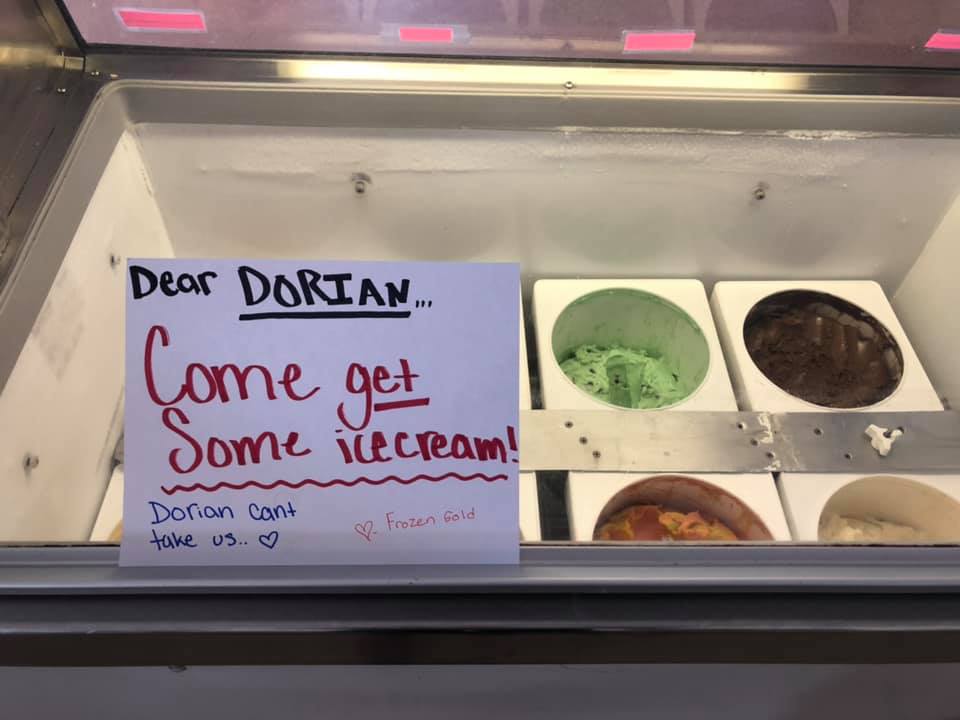 Dear DORIAN...
Come get
Some icecream!
Dorian Cant
take us.. ♡
♡. Frozen Gold